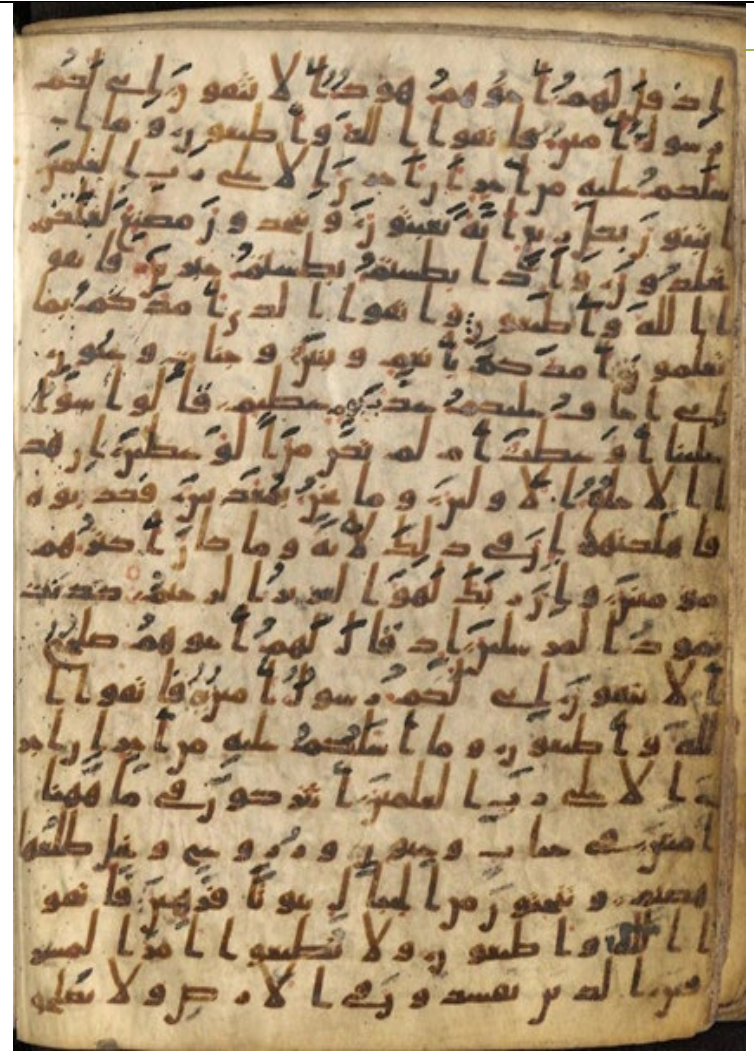 اذ قال لهم اخوهم هود الا تتقون انى لكم
رسول امين فاتقوا الله واطيعون وما ا
سلكم عليه من اجر ان اجرى الا على رب العلمين
اتبنون بكل ريع اية تعبثون وتتخذون مصنع لعلكم
تخلدون واذا بطشتم بطشتم جبرين فاتقو
ا الله واطيعون واتقوا الذى امدكم بما
تعلمون امدكم بانعم وبنين وجنات وعيون
انى اخاف عليكم عذاب يوم عظيم قالوا سوا
علينا اوعظت ام لم تكن من الوعظين ان هذ
ا الا خلق الاولين وما نحن بمعذبين فكذبوه
فاهلكنهم ان فى ذلك لاية وما كان اكثرهم
مومنين وان ربك لهو العزيز الرحيم كذبت
ثمود المرسلين اذ قال لهم اخوهم صلح
الا تتقون انى لكم رسول امين فاتقوا ا
لله واطيعون وما اسلكم عليه من اجر ان اجر
ى الا على رب العلمين اتتركون فى ما ههنا
امنين فى جنات وعيون وزروع ونخل طلعها
هضيم وتنحتون من الجبال بيوتا فرهين فاتقو
ا الله واطيعون ولا تطيعوا امر المسر
فين الذين يفسدون فى الارض ولا يصلحو